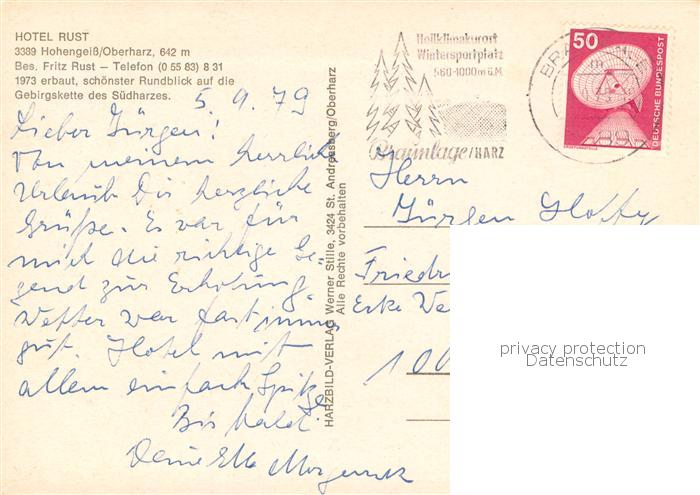 HOTEL RUST
3389 Hohengeiß/Oberharz, 642 m
Bes. Fritz Rust – Telefon (0 55 83) 8 31
1973 erbaut, schönster Rundblick auf die
Gebirgskette des Südharzes.
5.9.79
Lieber Jürgen!
Von meinem herrlich
Urlaub Dir herzliche
Grüße. Es war für
mich die richtige Ge-
gend zur Erholung.
Wetter war fast immer
gut. Hotel mit
allem einfach Spitze
Bis bald.
Deine Ella
HARZBILD-VERLAG Werner Stille, 3424 St. Andreasberg/Oberharz
Alle Rechte vorbehalten
Heilklimakurort
Wintersportplatz
560-1000m ü.M.
Braunlage/HARZ
50
DEUTSCHE BUNDESPOST
Herrn
Jürgen
Friedr
Ecke We
100
privacy protection
Datenschutz